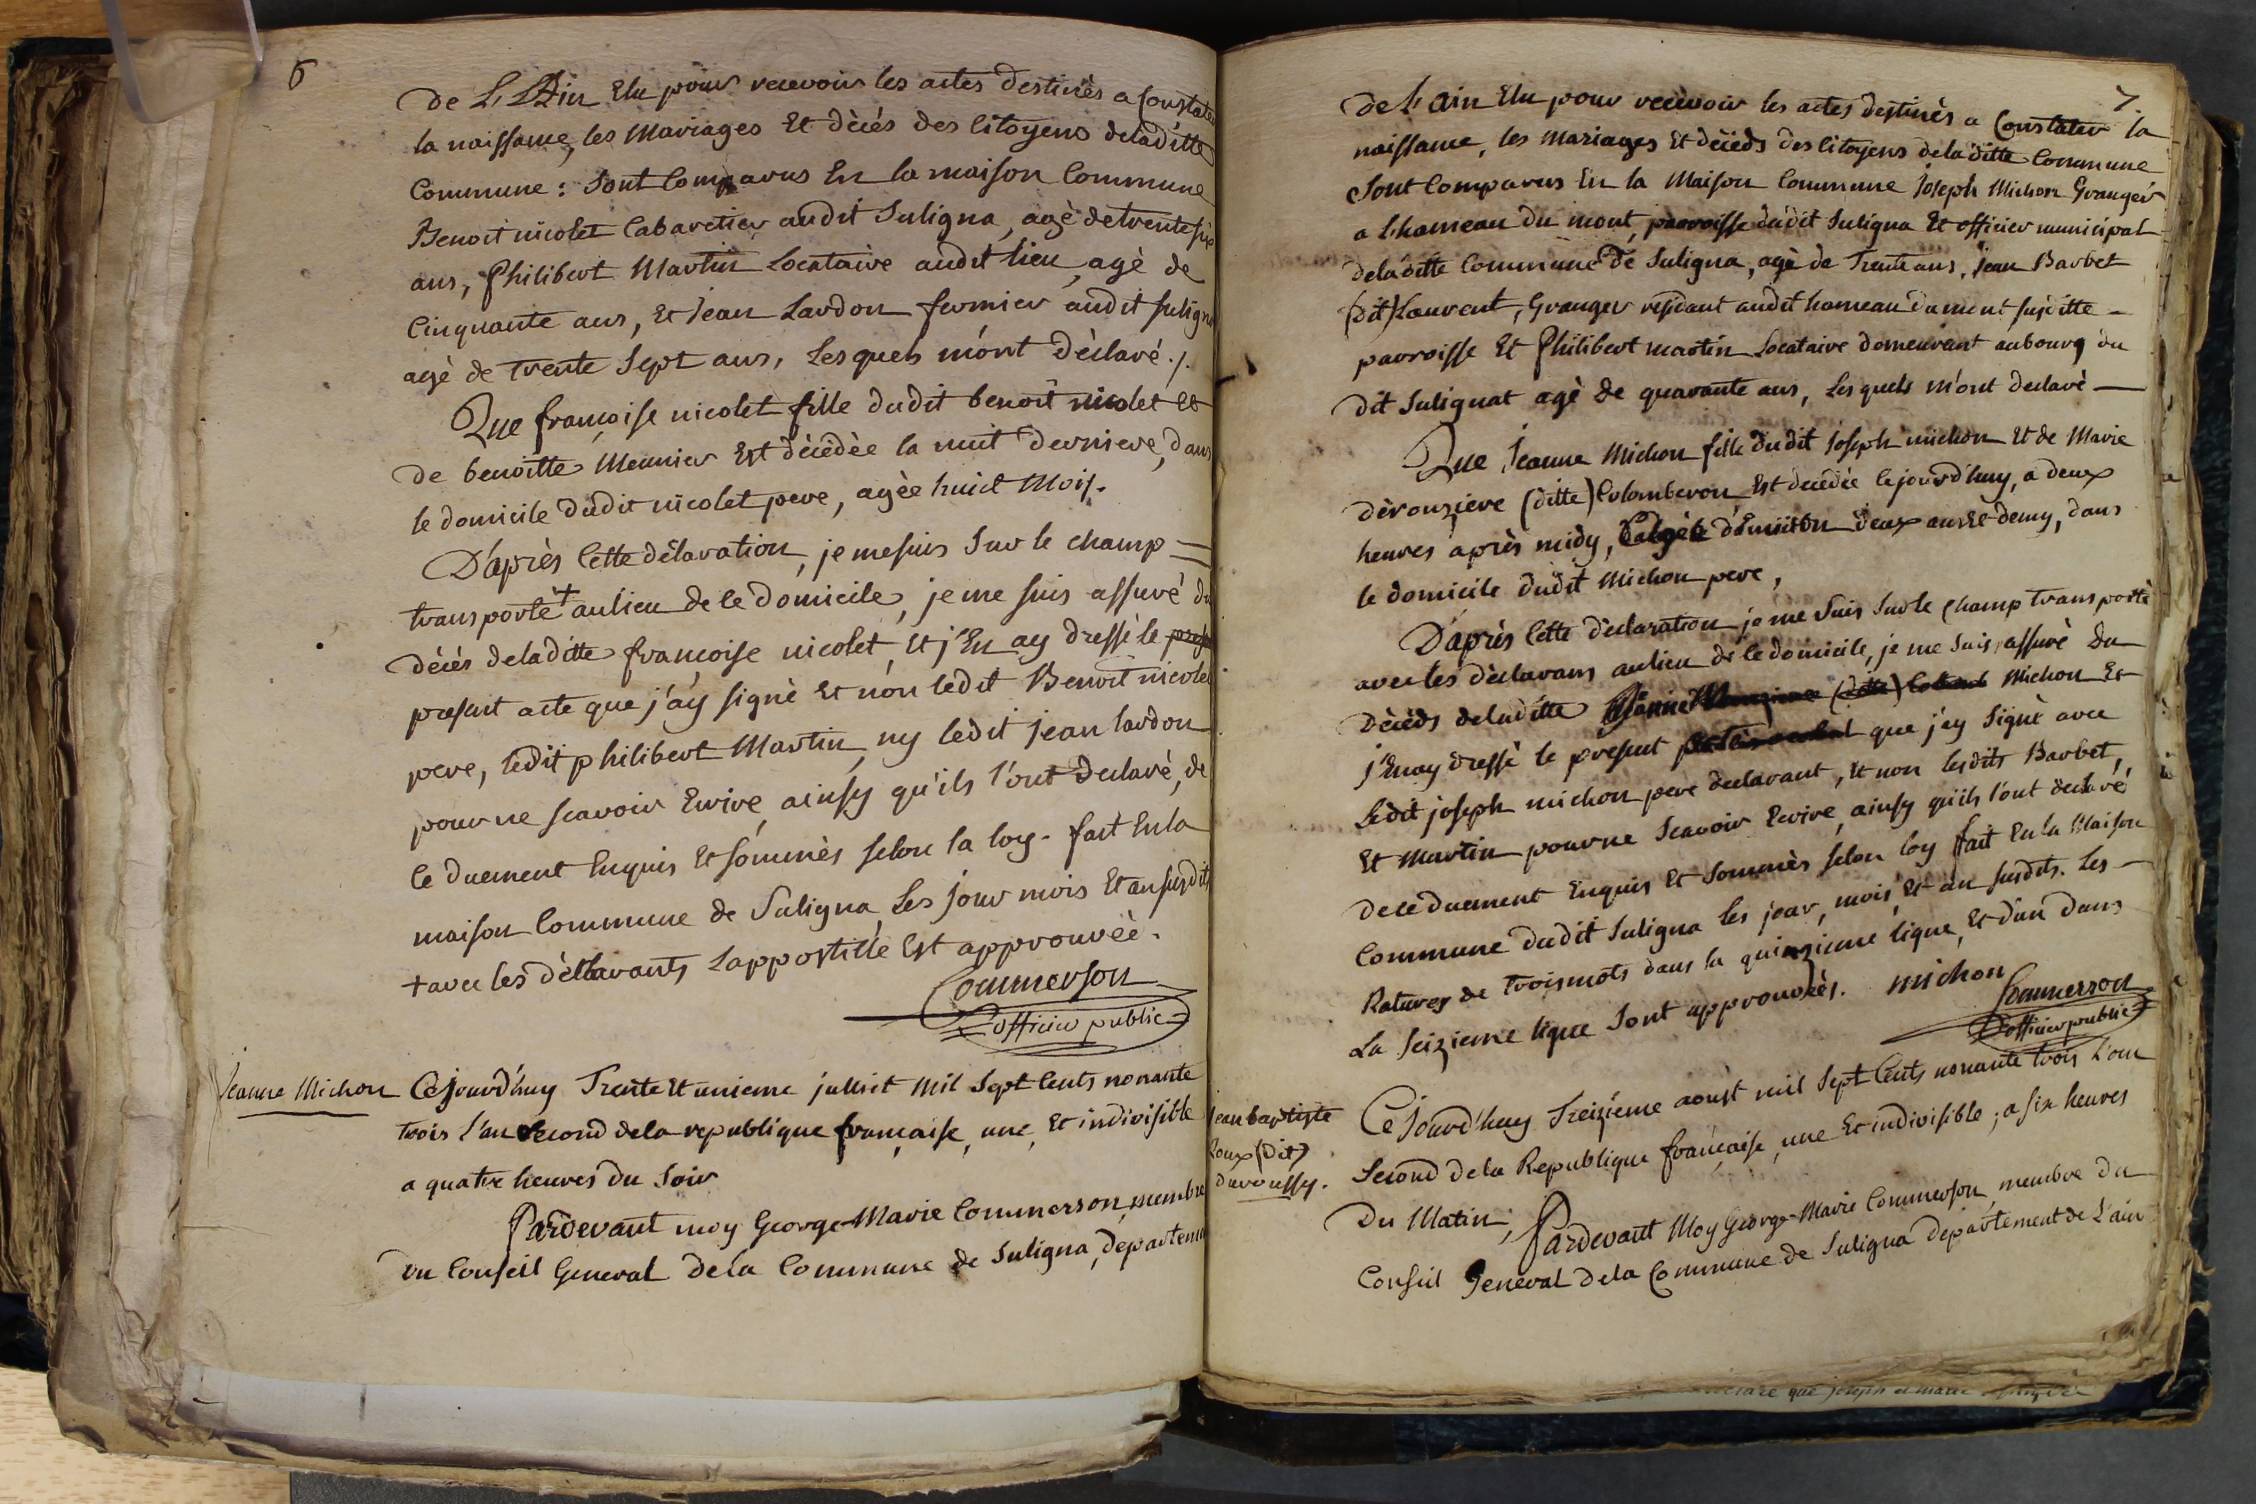 6
de L'Ain Elu pour recevoir les actes destinès a Constater
la naissance, les Mariages Et décés des Citoyens deladitte
Commune : Sont Comparus En la maison Commune
Benoit nicolet Cabaretier audit Suligna, agè de trente six
ans, Philibert Martin Locataire audit lieu, agè de
Cinquante ans, Et Jean Lardon fermier audit Suligna
agé de trente Sept ans, Lesquels m'ont dèclaré ./.
Que françoise nicolet fille dudit benoit nicolet Et
de benoitte Meunier Est dècedèe la nuit derniere, dans
le domicile dudit nicolet pere, agèe huict Mois.
D'après Cette dèlaration, je me suis Sur le champ
transporté + au lieu de ce domicile, je me suis assuré du
dècés deladitte françoise nicolet, Et j'En ay dressè le
present acte que j'ay signè Et non ledit Benoit nicolet
pere, ledit philibert Martin, ny ledit jean lardon
pour ne scavoir Ecrire, ainsy qu'ils l'ont declaré, de
ce duement Enquis Et sommès selon la loy. fait En la
maison Commune de Suligna Les jour mois Et an susdits
+ avec les dèclarants Lappostille Est approuvèe.
Commerson
officier public
Jeanne Michon
Cejourd'huy Trente Et unieme julliet Mil Sept Cents nonante
trois l'an Second dela republique française, une, Et indivisible
a quatre heures du Soir
Pardevant moy George-Marie Commerson, membre
du Conseil General dela Commune de Suligna, departement
7
de L'ain Elu pour recevoir les actes destinès a Constater la
naissance, les Mariages Et décéds des Citoyens deladitte Commune
Sont Comparus En la Maison Commune Joseph Michon Granger
a L'hameau du mont, parroisse dudit Suligna Et officier municipal
deladitte Commune de Suligna, agè de Trente ans, Jean Barbet
(dit) Laurent, Granger residant audit hameau du mont susditte
parroisse Et Philibert martin Locataire demeurant au bourg du
dit Sulignat agè de quarante ans, Lesquels m'ont declarè
Que Jeanne Michon fille dudit Joseph michon Et de Marie
dèrouziere (ditte) Colomberon Est decèdèe cejourd'huy, a deux
heures après midy, deux ans Et demy, dans
le domicile dudit Michon pere,
D'après Cette dèclaration je me Suis Sur le champ transportè
avec les dèclarans au lieu de ce domicile, je me suis assurè du
Dècèds deladitte Michon Et
j'En ay dressè le present que j'ay Signè avec
Ledit joseph michon pere declarant, Et non lesdits Barbet,
Et Martin pour ne Scavoir Ecrire, ainsy qu'ils l'ont declaré
de ce duement Enquis Et Sommès selon loy fait En la Maison
Commune dudit Suligna les jour, mois, Et an susdits. Les
Ratures de trois mots dans la quinzieme ligne, Et d'un dans
La Seizieme ligne Sont approuvées. michon
Commerson
officier public
jean baptiste
Roux (dit)
duroussy.
Cejourd'huy Treizieme aoust mil Sept Cents nonante trois L'an
Second dela Republique française, une Et indivisible ; a six heures
Du Matin, Pardevant Moy George-Marie Commerson, membre du
Conseil General dela Commune de Suligna departement de L'ain